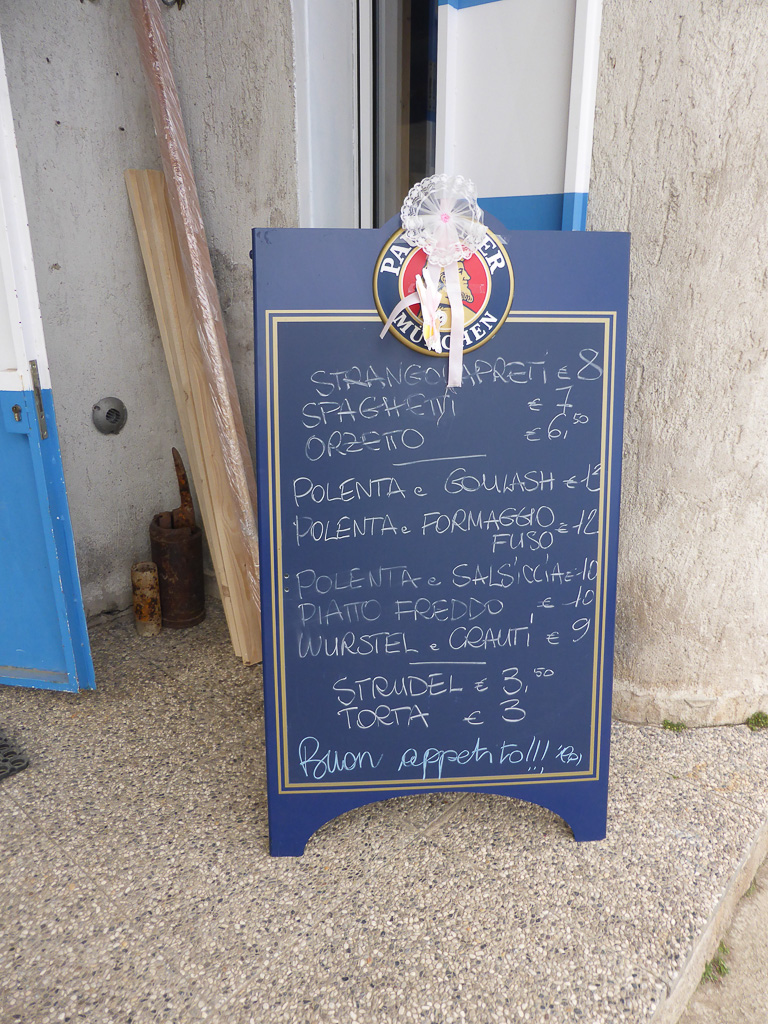 PA ER
MÜNCHEN
STRANGOLAPRETI € 8
SPAGHETTI € 7
ORZETTO € 6,50
POLENTA e GOULASH € 12
POLENTA e FORMAGGIO € 12
FUSO
POLENTA e SALSICCIA € 10
PIATTO FREDDO € 10
WURSTEL e CRAUTI € 9
STRUDEL € 3,50
TORTA € 3
Buon appetito!!!